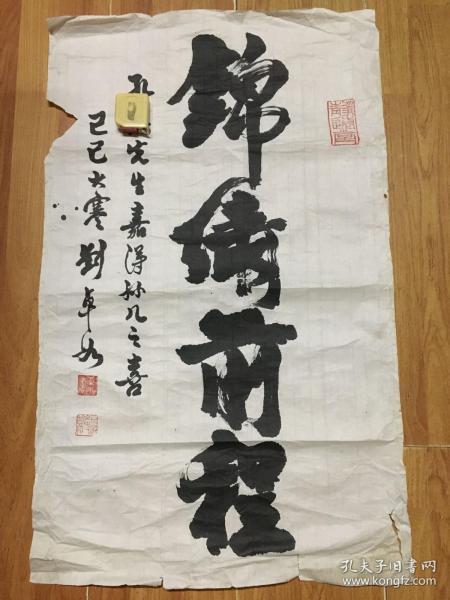 錦绣前程
孔先生嘉得孙儿之喜
己巳大寒 刘卓如
孔夫子旧书网
www.kongfz.com